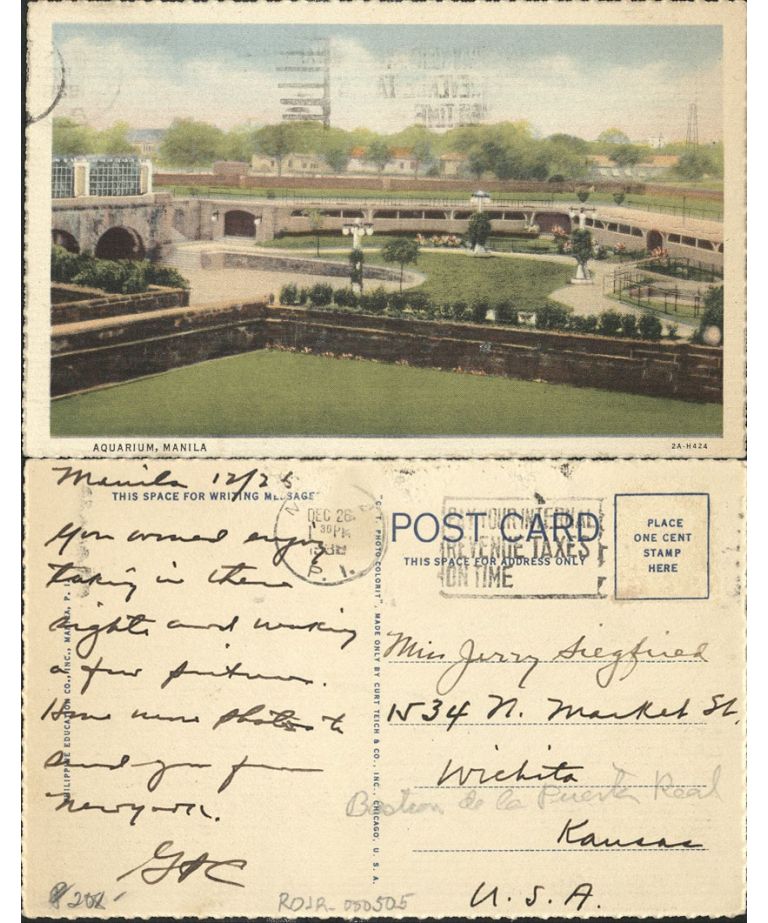 AQUARIUM, MANILA
2A-H424
Manila 12/25
THIS SPACE FOR WRITING MESSAGE
You would enjoy
taking in these
sights and making
a few pictures.
Have more photos to
send you from
New York.
GAC
PHILIPPINE EDUCATION CO., INC., MANILA, P. I.
DEC 26
PM
P. I.
"C. T. PHOTO-COLORIT", MADE ONLY BY CURT TEICH & CO., INC., CHICAGO, U. S. A.
POST CARD
THIS SPACE FOR ADDRESS ONLY
PAY YOUR INTERNAL
REVENUE TAXES
ON TIME
PLACE
ONE CENT
STAMP
HERE
Miss Jerry Siegfried
1534 N. Market St.
Wichita
Bastion de la Puerta Real
Kansas
U. S. A.
ROJR-000505